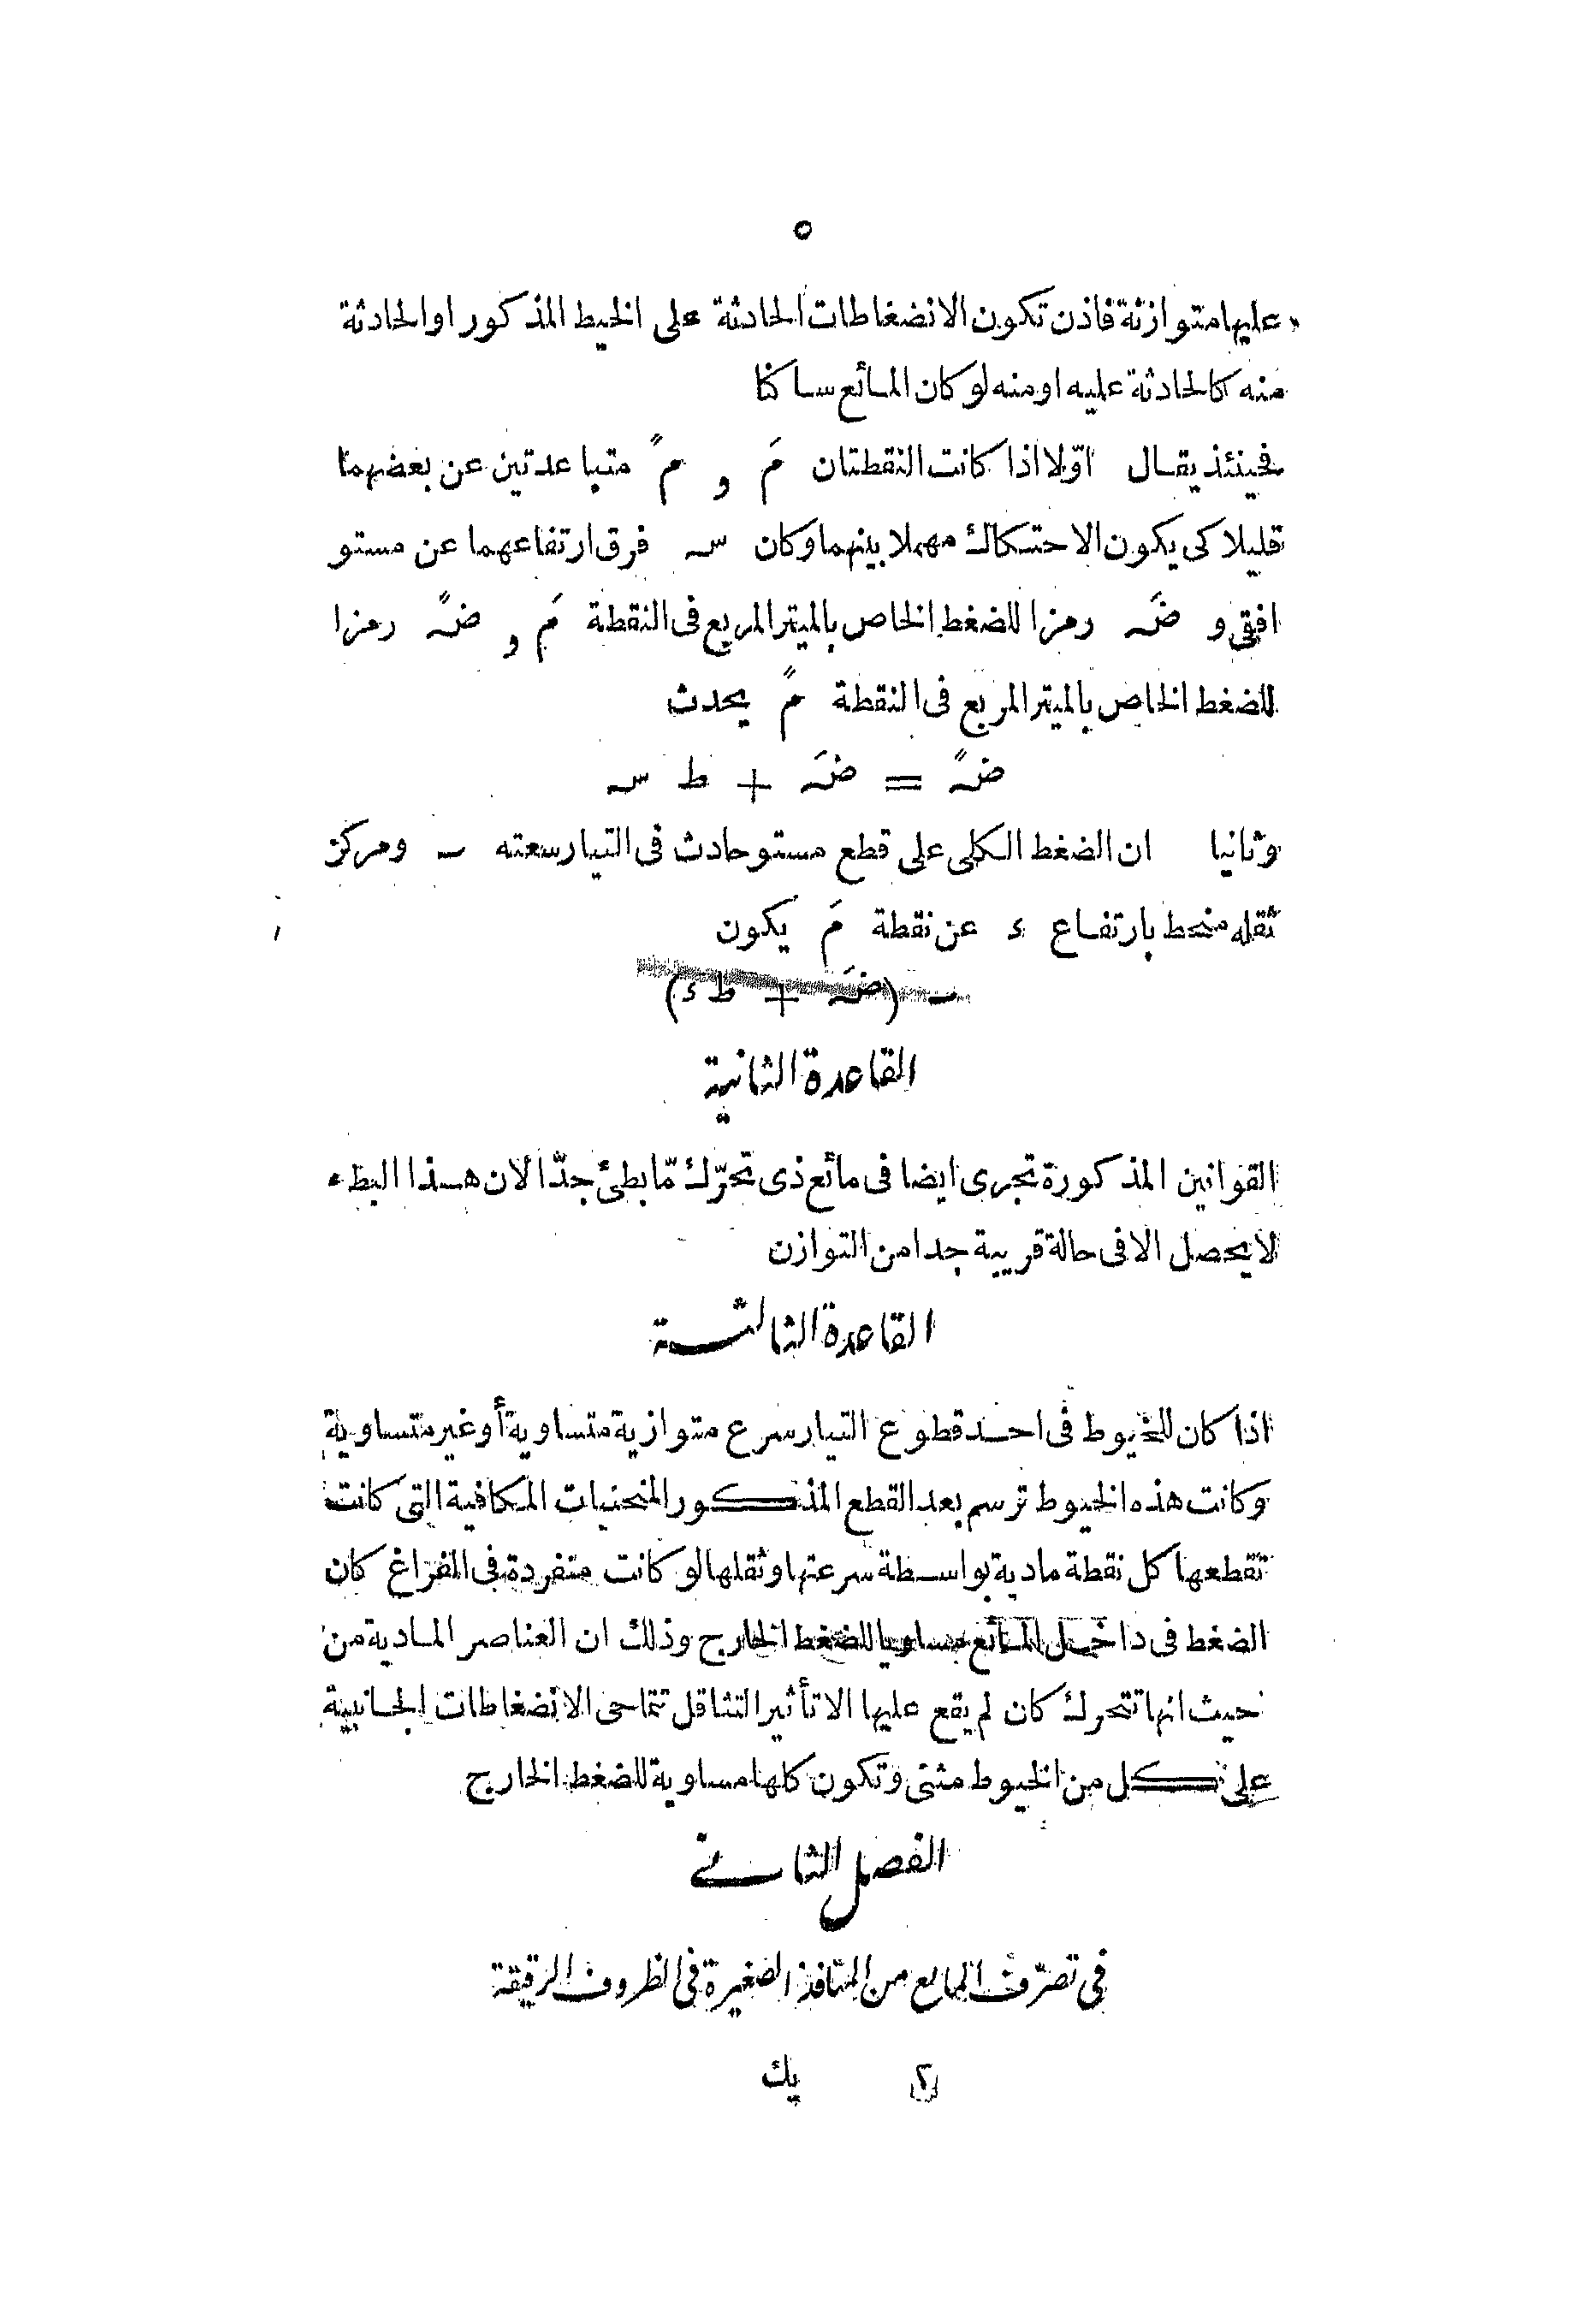 ٥
عليها متوازنة فاذن تكون الانضغاطات الحادثة على الخيط المذكور او الحادثة
منه كالحادثة عليه او منه لو كان المائع ساكنا
فحينئذ يقال اوّلا اذا كانت النقطتان مَ و مً متباعدتين عن بعضهما
قليلا كى يكون الاحتكاك مهملا بينهما وكان سـ فرق ارتفاعهما عن مستو
افقى و ضَـ رمزا للضغط الخاص بالميتر المربع فى النقطة مَ و ضًـ رمزا
للضغط الخاص بالميتر المربع فى النقطة مً يحدث
ضًـ = ضَـ + ط سـ
وثانيا ان الضغط الكلى على قطع مستو حادث فى التيار سعته ـ ومركز
ثقله منحط بارتفاع ء عن نقطة مَ يكون
ـ (ضَـ + ط ء)
القاعدة الثانية
القوانين المذكورة تجرى ايضا فى مائع ذى تحرّك مّا بطئ جدّا لان هذا البطء
لا يحصل الا فى حالة قريبة جدا من التوازن
القاعدة الثالثة
اذا كان للخيوط فى احد قطوع التيار سرع متوازية متساوية أو غير متساوية
وكانت هذه الخيوط ترسم بعد القطع المذكور المنحنيات المكافية التى كانت
تقطعها كل نقطة مادية بواسطة سرعتها وثقلها لو كانت متفردة فى الفراغ كان
الضغط فى داخل المائع مساويا للضغط الخارج وذلك ان العناصر المادية من
حيث انها تتحرك كان لم يقع عليها الا تأثير التثاقل تتماحى الانضغاطات الجانبية
على كل من الخيوط مثنى وتكون كلها مساوية للضغط الخارج
الفصل الثانى
فى تصرّف المايع من المنافذ الصغيرة فى الظروف الرقيقة
٢ يك